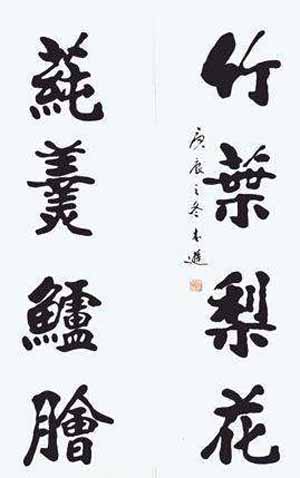 竹葉梨花
庚辰之冬
蒓羹鱸膾